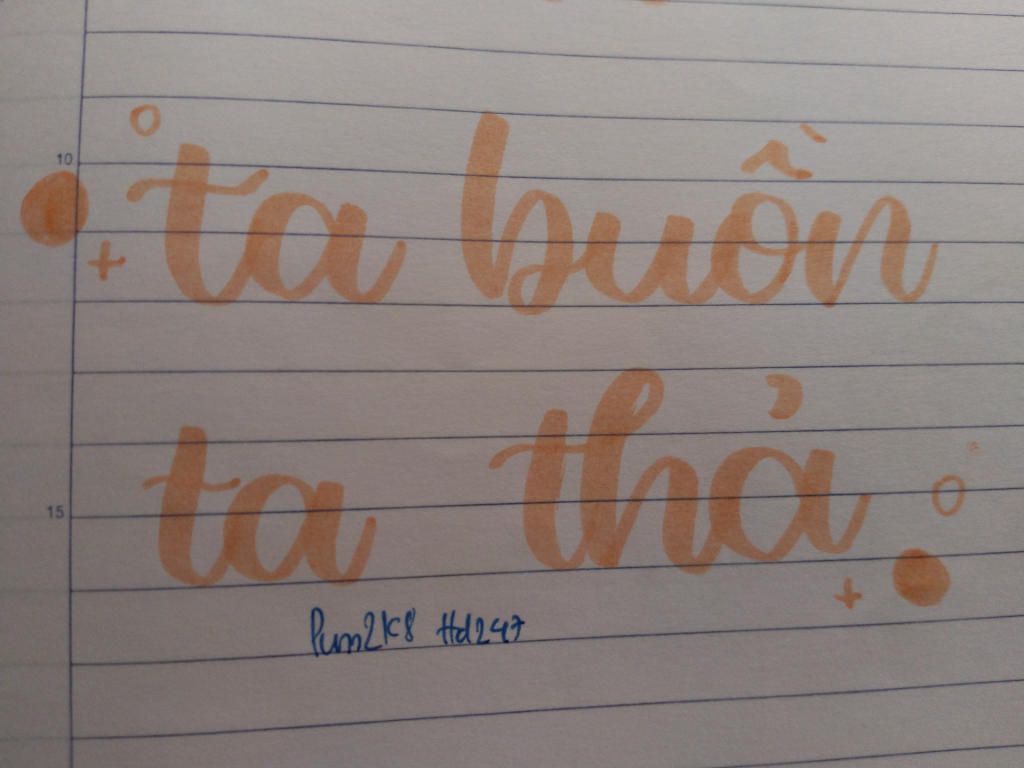 10
ta buồn
15
ta thả
Pun2K8 Hd247